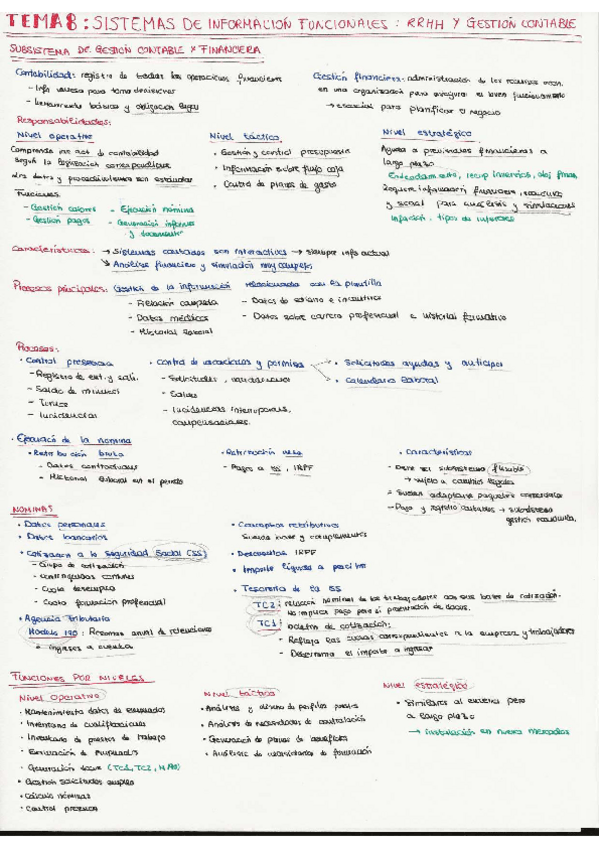 TEMA 8: SISTEMAS DE INFORMACIÓN FUNCIONALES: RRHH Y GESTIÓN CONTABLE
SUBSISTEMA DE GESTIÓN CONTABLE Y FINANCIERA
Contabilidad: registro de todas las operaciones financieras
- Info valiosa para toma decisiones
- Herramienta básica y obligación legal
Gestión financiera: administración de los recursos
en una organización para asegurar el buen funcionamiento
→ esencial para planificar el negocio
Responsabilidades:
Nivel operativo
Comprende las act. de contabilidad
según la legislación correspondiente
los datos y procedimientos son estándar
Funciones
- Gestión cobros
- Gestión pagos
- Ejecución nómina
- Generación informes
y documentos
Nivel táctico
• Gestión y control presupuesto
• Información sobre flujo caja
• Control de planes de gasto
Nivel estratégico
Ayuda a previsiones financieras a
largo plazo
Endeudamiento, recup inversión, obj finan.
Requiere información financiera, económica
y social para análisis y simulaciones
Inflación, tipos de interés
Características: → Sistemas contables son interactivos → siempre info actual
↘ Análisis financiero y simulación muy complejos
Procesos principales: Gestión de la información relacionada con la plantilla
- Relación completa
- Datos médicos
- Historial laboral
- Datos de salario e incentivos
- Datos sobre carrera profesional e historial formativo
Procesos:
• Control presencia
- Registro de ent. y sali.
- Saldo de minutos
- Turnos
- Incidencias
• Control de vacaciones y permisos
- Solicitudes,
- Saldos
- Incidencias interrupciones,
compensaciones.
• Solicitudes ayudas y anticipos
• Calendario laboral
• Ejecución de la nómina
• Retribución bruta
- Datos contractuales
- Historial laboral en el periodo
• Retribución neta
- Pagos a SS, IRPF
• Características
- Debe ser subsistema flexible
→ sujeto a cambios legales
- Suelen adaptarse paquetes comerciales
- Pago y registro contables → subsistema
gestión económica.
NÓMINAS
• Datos personales
• Datos bancarios
• Cotización a la Seguridad Social (SS)
- Grupo de cotización
- Contingencias comunes
- Cuota desempleo
- Cuota formación profesional
• Agencia Tributaria
Modelo 190: Resumen anual de retenciones
e ingresos a cuenta
• Conceptos retributivos
Sueldo base y complementos
• Descuentos IRPF
• Importe líquido a percibir
• Tesorería de la SS
TC2: relación nominal de los trabajadores con sus bases de cotización.
No implica pago pero sí presentación de docus.
TC1: boletín de cotización:
- Refleja las cuotas correspondientes a la empresa y trabajadores
- Determina el importe a ingresar
FUNCIONES POR NIVELES
Nivel operativo
• Mantenimiento datos de empleados
• Inventario de cualificaciones
• Inventario de puestos de trabajo
• Evaluación de empleados
• Generación docu (TC1, TC2, M190)
• Gestión solicitudes empleo
• Cálculo nóminas
• Control presencia
Nivel táctico
• Análisis y diseño de perfiles puestos
• Análisis de necesidades de contratación
• Generación de planes de
• Análisis de necesidades de formación
Nivel estratégico
• Similares al anterior pero
a largo plazo
→ instalación en nuevos mercados